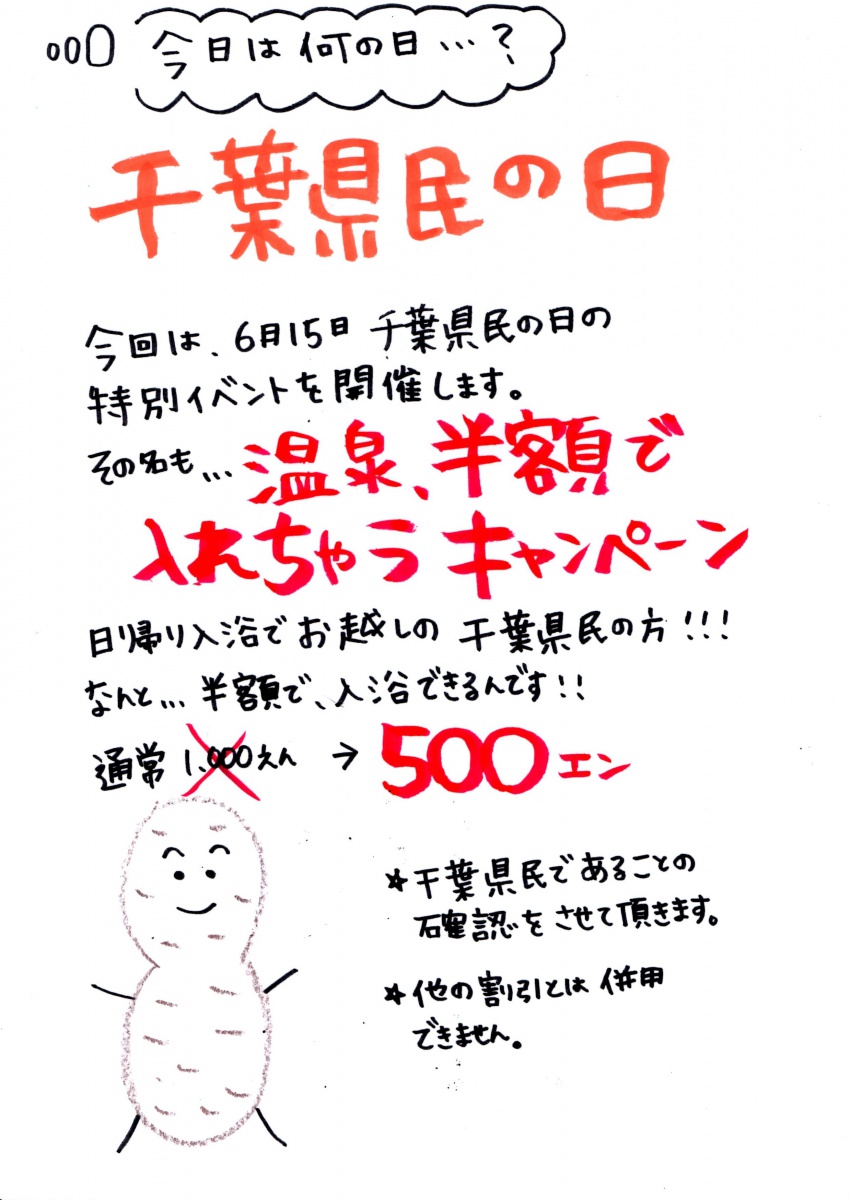 今日は何の日…?
千葉県民の日
今回は、6月15日 千葉県民の日の
特別イベントを開催します。
その名も… 温泉、半額で
入れちゃうキャンペーン
日帰り入浴でお越しの 千葉県民の方!!!
なんと… 半額で、入浴できるんです!!
通常 1,000えん → 500エン
*千葉県民であることの
確認をさせて頂きます。
*他の割引とは併用
できません。